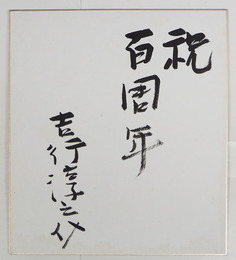 祝
百周年
吉行淳之介